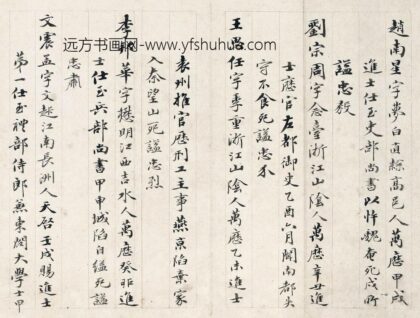 远方书画网-www.yfshuhua.com
趙南星字夢白直隸高邑人萬曆甲戌
進士任吏部尚書以忤魏奄死戍所
謚忠毅
劉宗周字念臺浙江山陰人萬曆辛丑進
士歷官左都御史乙酉六月聞南都失
守不食死謚忠
王思任字季重浙江山陰人萬歷乙未進士
袁州推官歷刑工主事燕京陷棄家
入秦望山死謚忠烈
李邦華字懋明江西吉水人萬歷癸進
士任兵部尚書甲申城陷自縊死謚
忠肅
文震孟字文起江南長洲人天啓壬戌賜進士
第一任至禮部侍郎兼東閣大學士甲